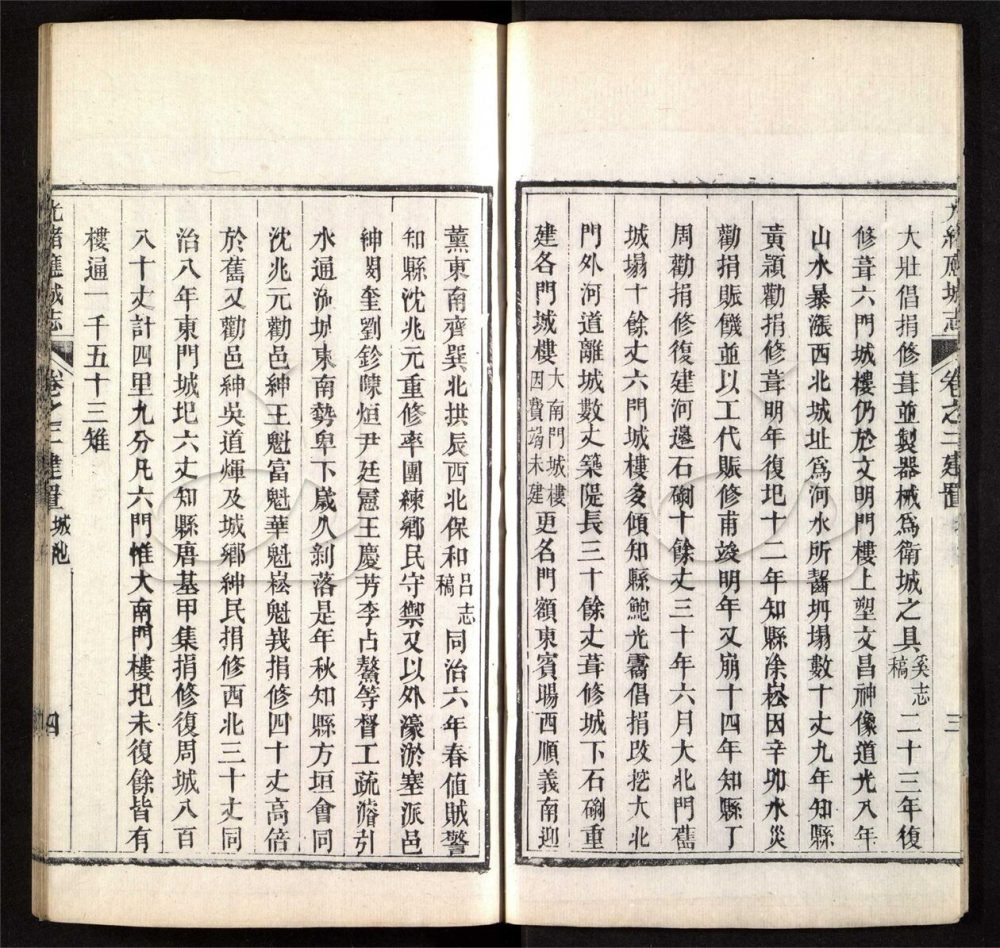 光緒應城志 卷之二建置 三
大壯倡捐修葺並製器械爲衛城之具奚志稿二十三年復
修葺六門城樓仍於文明門樓上塑文昌神像道光八年
山水暴漲西北城址爲河水所齧坍塌數十丈九年知縣
黃潁勸捐修葺明年復圯十二年知縣凃崧因辛卯水災
勸捐賑饑並以工代賑修甫竣明年又崩十四年知縣丁
周勸捐修復建河邊石磡十餘丈三十年六月大北門舊
城塌十餘丈六門城樓多傾知縣鮑光霱倡捐改挖大北
門外河道離城數丈築隄長三十餘丈葺修城下石磡重
建各門城樓大南門城樓因費竭未建更名門額東賓暘西順義南迎
薰東南齊巽北拱辰西北保和呂志稿同治六年春値賊警
知縣沈兆元重修率團練鄉民守禦又以外濠淤塞派邑
紳閔奎劉鉁陳烜尹廷憲王慶芳李占鰲等督工疏濬引
水通流城東南勢卑下歲久剝落是年秋知縣方垣會同
沈兆元勸邑紳王魁富魁華魁崧魁峩捐修四十丈高倍
於舊又勸邑紳吳道煇及城鄉紳民捐修西北三十丈同
治八年東門城圯六丈知縣唐基甲集捐修復周城八百
八十丈計四里九分凡六門惟大南門樓圯未復餘皆有
樓遍一千五十三雉
光緒應城志 卷之二建置 城池 四